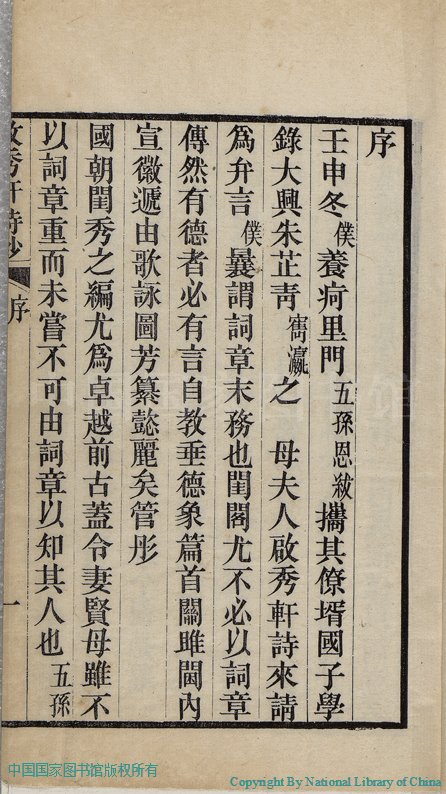 序
壬申冬僕養疴里門五孫恩紱攜其僚壻國子學
錄大興朱芷青寯瀛之 母夫人啟秀軒詩來請
為弁言僕曩謂詞章末務也閨閣尤不必以詞章
傳然有德者必有言自教垂德象篇首關雎閫內
宣徽遞由歌詠圖芳纂懿麗矣管彤
國朝閨秀之編尤為卓越前古蓋令妻賢母雖不
以詞章重而未嘗不可由詞章以知其人也五孫
啟秀軒詩鈔
序
一
中国国家图书馆版权所有
Copyright By National Library of China